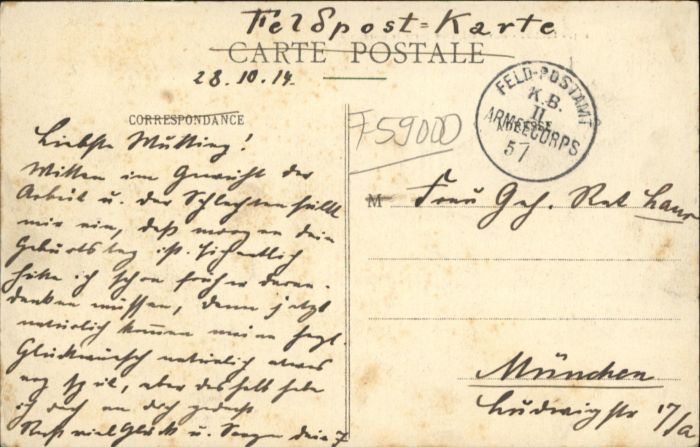 Feldpost=Karte
CARTE POSTALE
28.10.14.
CORRESPONDANCE
F59000
FELD-POSTAMT
K.B.
II
ARMEECORPS
57
Liebste Mutting!
Mitten im Gewicht der
Arbeit u. der Schlachten fällt
mir ein, daß morgen dein
Geburtstag ist. Eigentlich
hätte ich schon früher daran
denken müssen, denn jetzt
natürlich kommen meine
Glückwünsch natürlich etwas
spät, aber deshalb habe
ich doch an dich gedacht
Recht viel Glück u. Segen dein
M Frau Geh. Rat
München
Ludwigstr 17/a